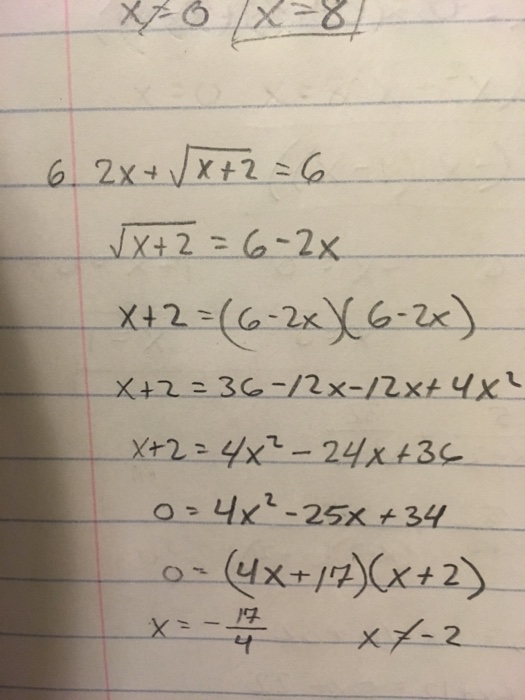 x≠0 x=8
6. 2x+√(x+2) = 6
√(x+2) = 6-2x
x+2=(6-2x)(6-2x)
x+2=36-12x-12x+4x²
x+2=4x²-24x+36
0=4x²-25x+34
0=(4x+17)(x+2)
x=-17/4 x≠-2